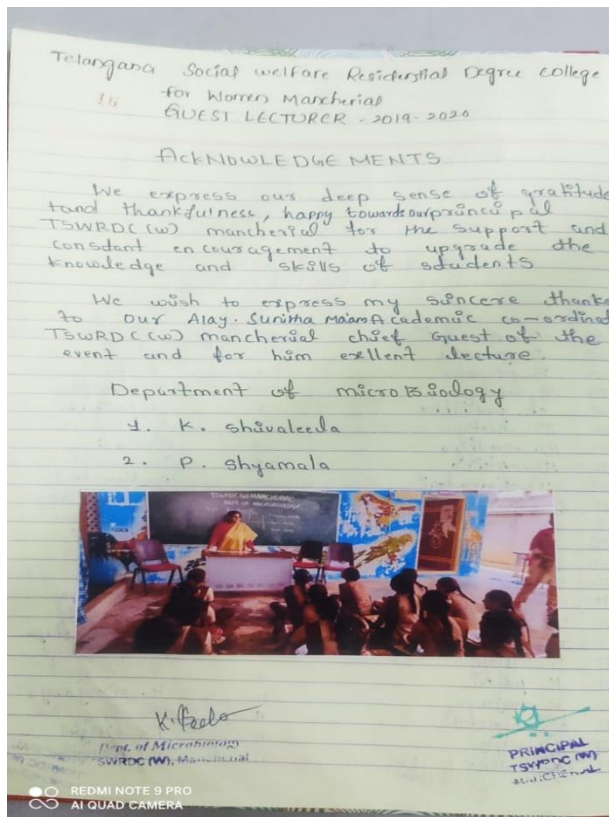 Telangana Social welfare Residenstial Degree college
16
for Women Mancherial
GUEST LECTURER - 2019-2020
ACKNOWLEDGE MENTS
We express our deep sense of gratitude
tand thankfulness, happy towards our principal
TSWRDC (w) mancherial for the support and
constant en couragement to upgrade the
knowledge and skills of students
We wish to express my sincere thanks
to our Alay. Sunitha Ma'am Academic co-ordinat
TSWRDC (w) mancherial chief Guest of the
event and for him exellent lecture.
Department of micro Biology
1. K. shivaleela
2. P. shyamala
TSWRDC (W) MANCHERIAL
DEPT. OF MICROBIOLOGY
Dept. of Microbiology
SWRDC (W), Mancherial
PRINCIPAL
TSWRDC (W)
REDMI NOTE 9 PRO
AI QUAD CAMERA